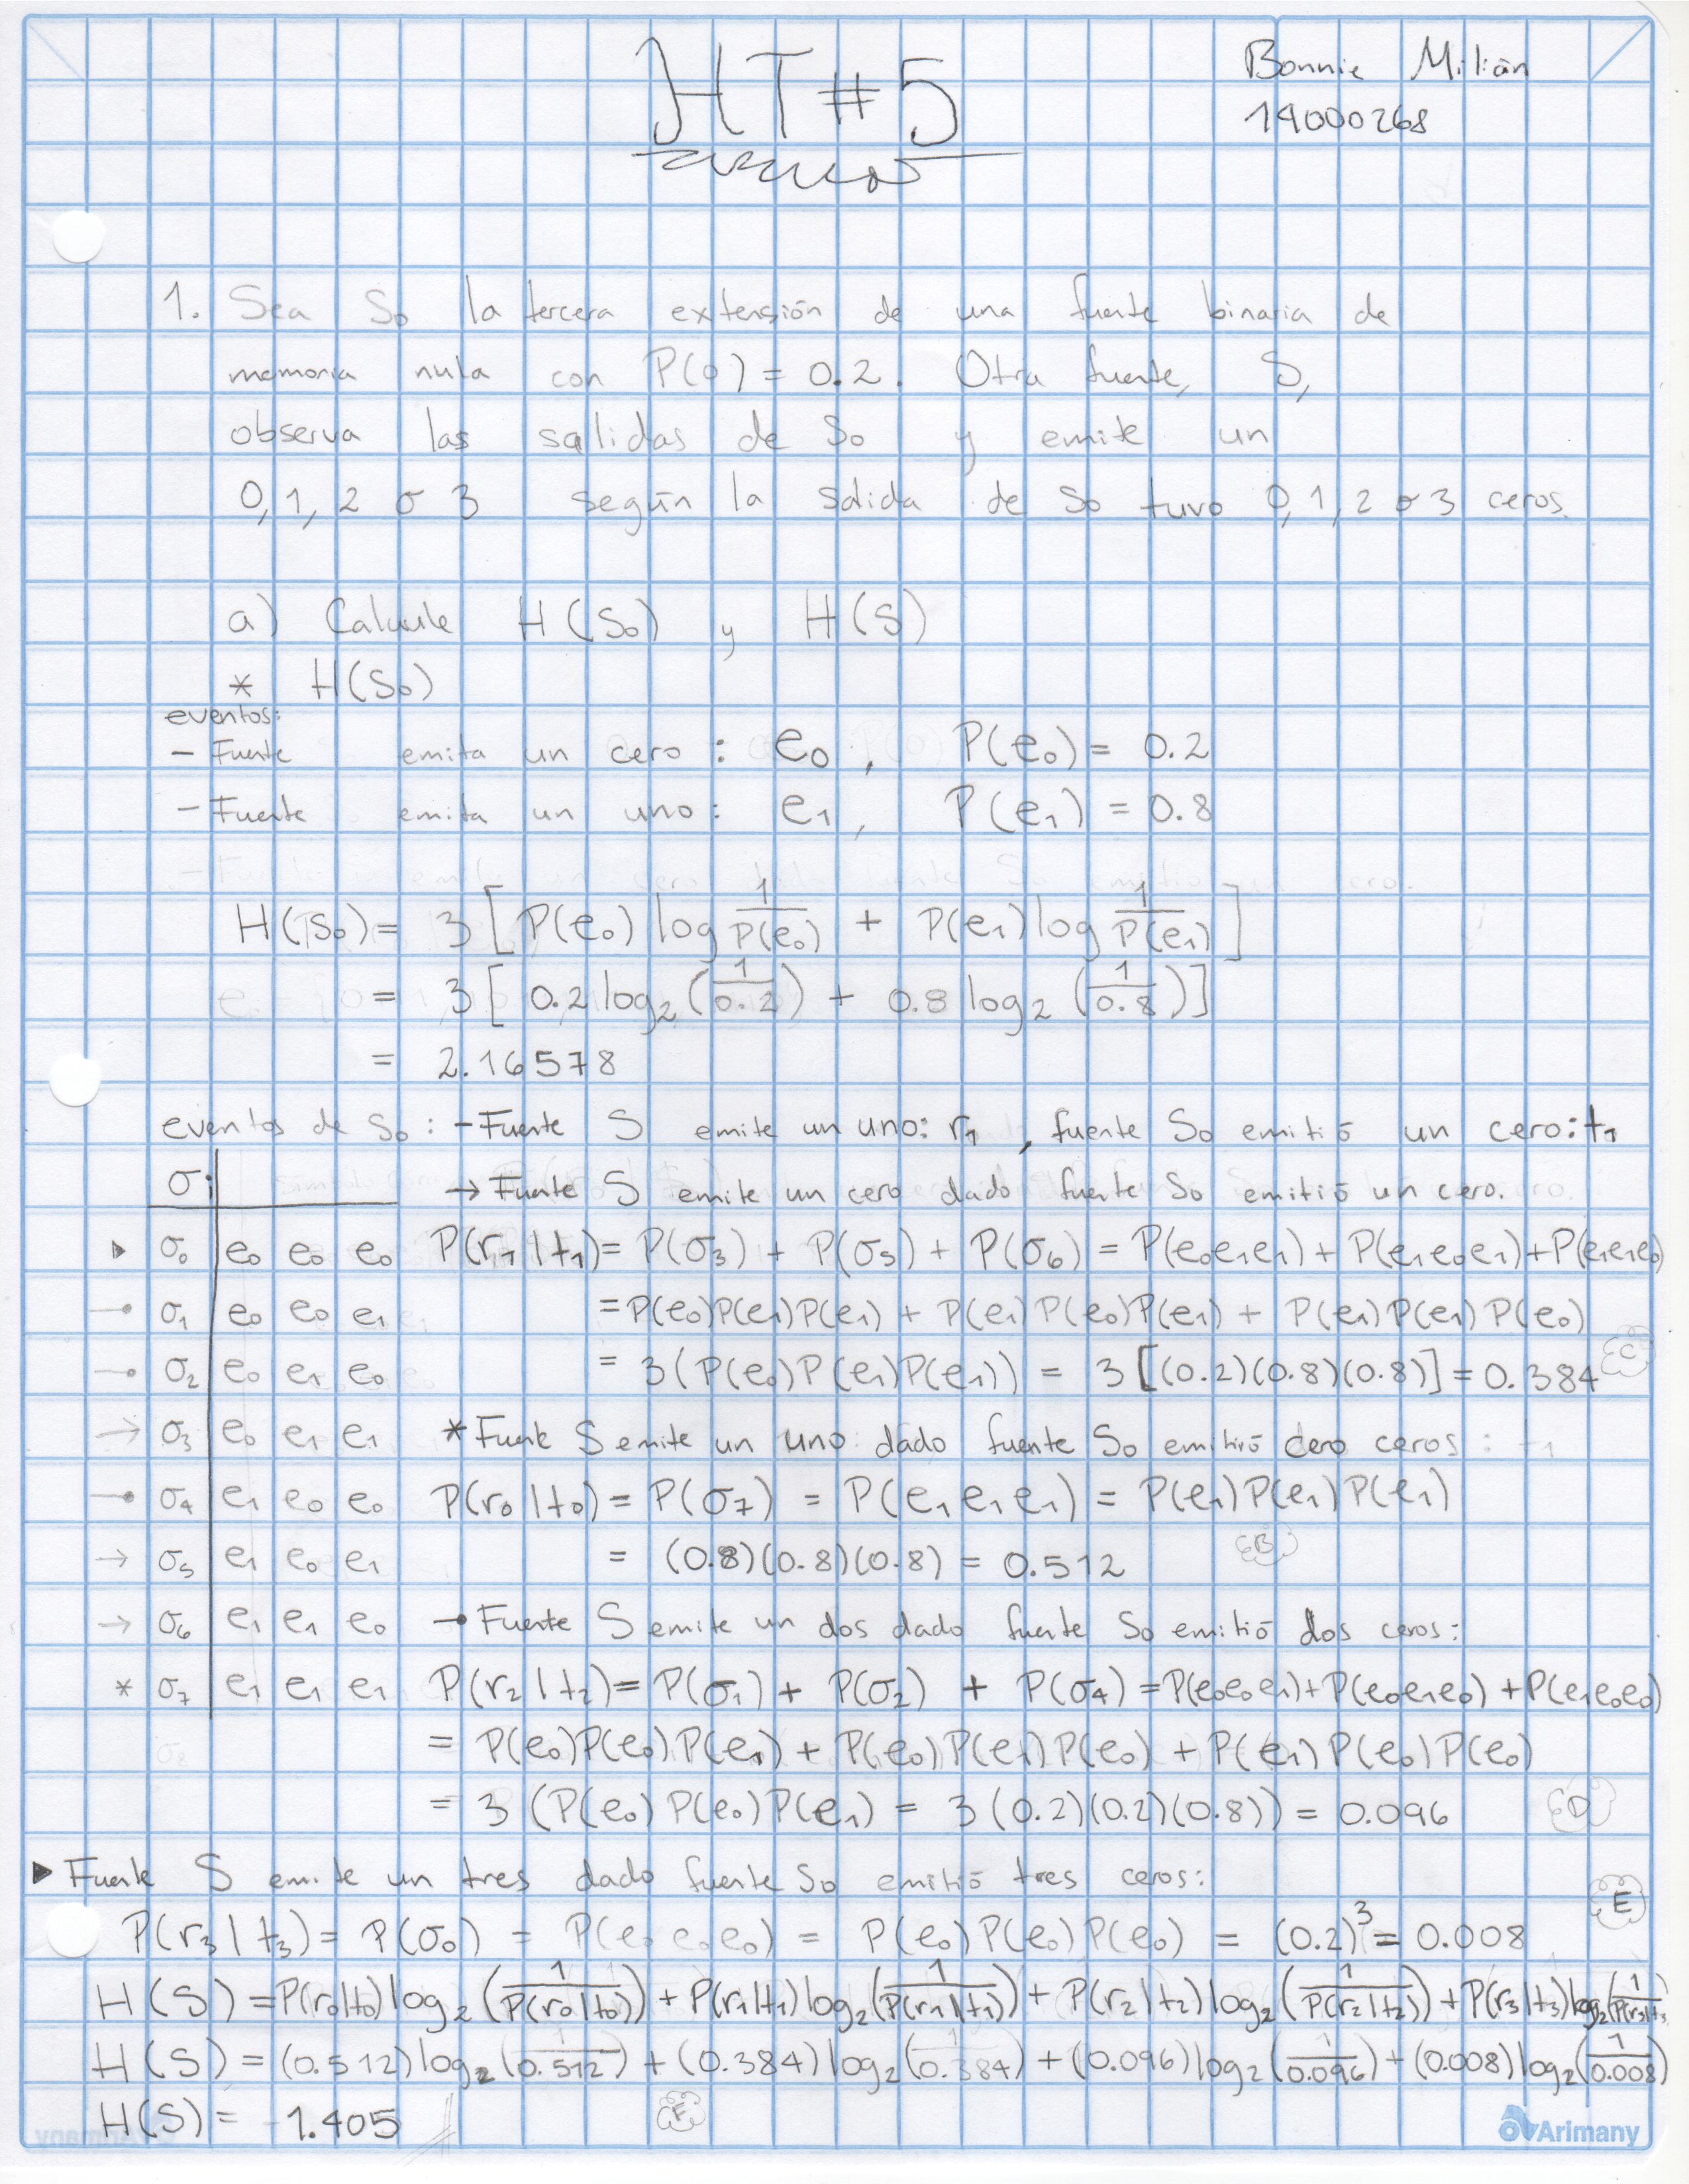 HT#5
Bonnie Milián
14000268
1. Sea S₀ la tercera extensión de una fuente binaria de
memoria nula con P(0) = 0.2. Otra fuente, S,
observa las salidas de S₀ y emite un
0, 1, 2 o 3 según la salida de S₀ tuvo 0, 1, 2 o 3 ceros.
a) Calcule H(S₀) y H(S)
* H(S₀)
eventos:
- Fuente emita un cero: e₀, P(e₀) = 0.2
- Fuente emita un uno: e₁, P(e₁) = 0.8
H(S₀) = 3 [ P(e₀) log 1/P(e₀) + P(e₁) log 1/P(e₁) ]
= 3 [ 0.2 log₂ (1/0.2) + 0.8 log₂ (1/0.8) ]
= 2.16578
eventos de S₀: - Fuente S emite un uno: r₁, fuente S₀ emitió un cero: t₁
σi → Fuente S emite un cero dado fuente S₀ emitió un cero.
▸ σ₀ e₀ e₀ e₀ P(r₁|t₁) = P(σ₃) + P(σ₅) + P(σ₆) = P(e₀e₁e₁) + P(e₁e₀e₁) + P(e₁e₁e₀)
⊸ σ₁ e₀ e₀ e₁ = P(e₀)P(e₁)P(e₁) + P(e₁)P(e₀)P(e₁) + P(e₁)P(e₁)P(e₀)
⊸ σ₂ e₀ e₁ e₀ = 3(P(e₀)P(e₁)P(e₁)) = 3[(0.2)(0.8)(0.8)] = 0.384 C
→ σ₃ e₀ e₁ e₁ * Fuente S emite un uno dado fuente S₀ emitió cero ceros:
⊸ σ₄ e₁ e₀ e₀ P(r₀|t₀) = P(σ₇) = P(e₁e₁e₁) = P(e₁)P(e₁)P(e₁)
→ σ₅ e₁ e₀ e₁ = (0.8)(0.8)(0.8) = 0.512 B
→ σ₆ e₁ e₁ e₀ ⊸ Fuente S emite un dos dado fuente S₀ emitió dos ceros:
* σ₇ e₁ e₁ e₁ P(r₂|t₂) = P(σ₁) + P(σ₂) + P(σ₄) = P(e₀e₀e₁) + P(e₀e₁e₀) + P(e₁e₀e₀)
= P(e₀)P(e₀)P(e₁) + P(e₀)P(e₁)P(e₀) + P(e₁)P(e₀)P(e₀)
= 3 (P(e₀)P(e₀)P(e₁) = 3 (0.2)(0.2)(0.8)) = 0.096 D
▸ Fuente S emite un tres dado fuente S₀ emitió tres ceros:
P(r₃|t₃) = P(σ₀) = P(e₀e₀e₀) = P(e₀)P(e₀)P(e₀) = (0.2)³ = 0.008 E
H(S) = P(r₀|t₀) log₂ (1/P(r₀|t₀)) + P(r₁|t₁) log₂ (1/P(r₁|t₁)) + P(r₂|t₂) log₂ (1/P(r₂|t₂)) + P(r₃|t₃) log₂ (1/P(r₃|t₃
H(S) = (0.512) log₂ (1/0.512) + (0.384) log₂ (1/0.384) + (0.096) log₂ (1/0.096) + (0.008) log₂ (1/0.008)
H(S) = 1.405 F
Arimany